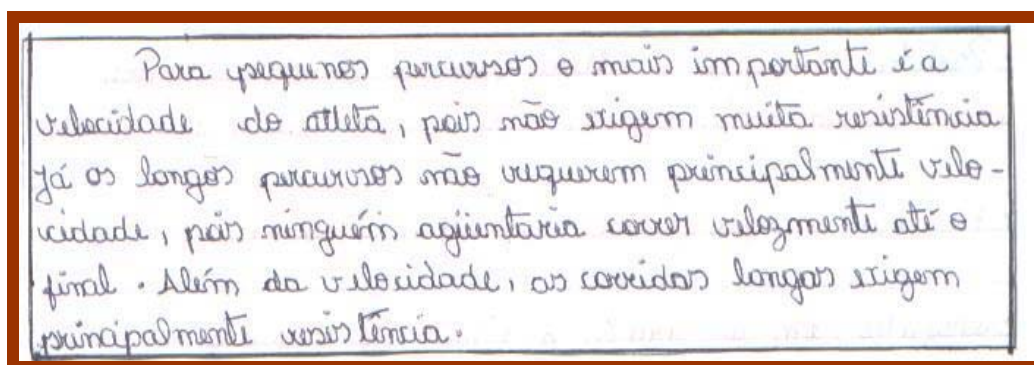 Para pequenos percursos o mais importante é a
velocidade do atleta, pois não exigem muita resistência
Já os longos percursos não requerem principalmente velo-
cidade, pois ninguém agüentaria correr velozmente até o
final. Além da velocidade, as corridas longas exigem
principalmente resistência.